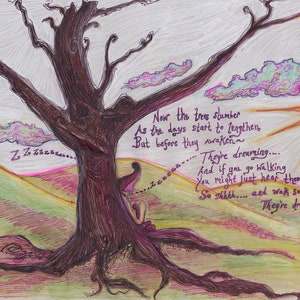 Now the trees slumber
As the days start to lengthen
But before they awaken~
They're dreaming....
And if you go walking
You might just hear them
So sshhh..... and walk
They're
Zzzzzzz......
Zzzzzz......